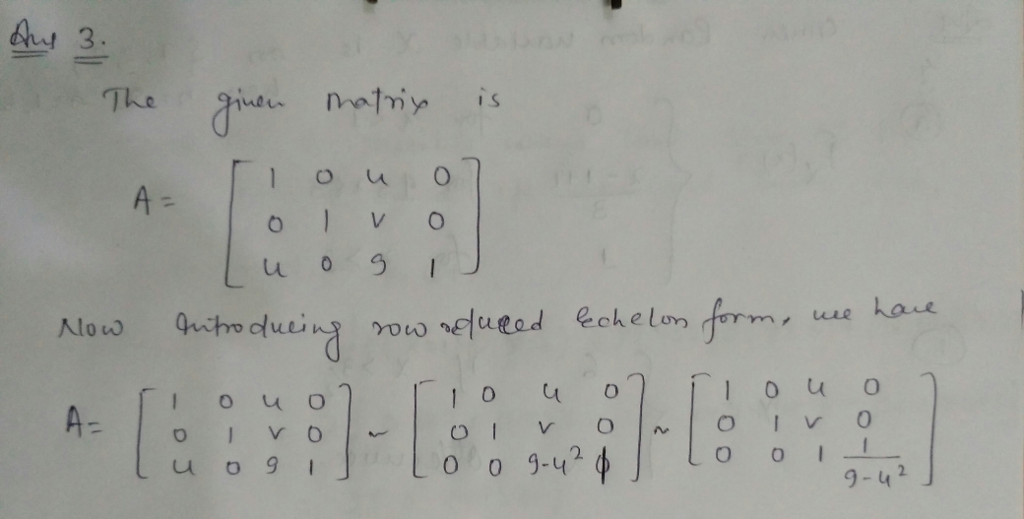 Ans 3.
The given matrix is
A = [ 1 0 u 0
0 1 v 0
u 0 9 1 ]
Now introducing row reduced Echelon form, we have
A = [ 1 0 u 0 ; 0 1 v 0 ; u 0 9 1 ] ~ [ 1 0 u 0 ; 0 1 v 0 ; 0 0 9-u² 1 ] ~ [ 1 0 u 0 ; 0 1 v 0 ; 0 0 1 1/(9-u²) ]